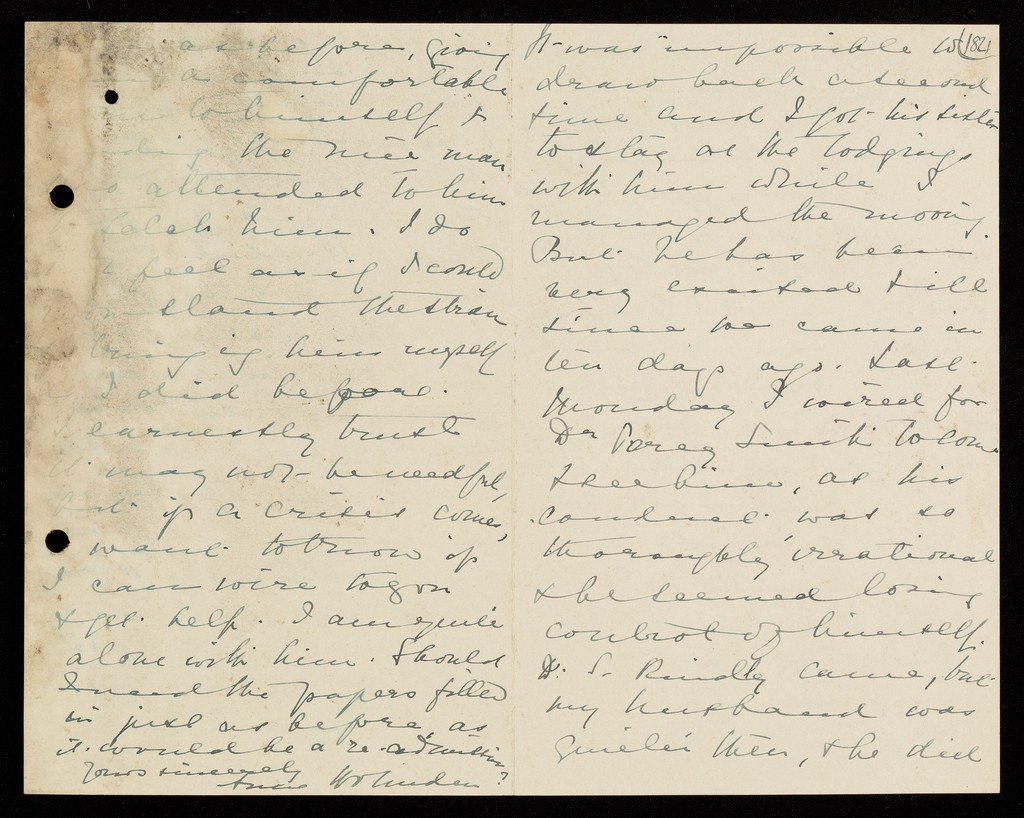 as before, giving
a comfortable
to himself &
the nice man
attended to him
fetch him. I do
feel as if I could
stand the strain
bringing him myself
I did before.
I earnestly trust
it may not be needful,
but if a crisis comes,
want to know if
I can wire to you
& get help. I am quite
alone with him. Should
I need the papers filled
in just as before, as
it would be a re-admission?
Yours sincerely
182
It was impossible to
draw back a second
time and I got his sister
to stay at the lodgings
with him while I
managed the moving.
But he has been
very excited & ill
since we came in
ten days ago. Last
Monday I wired for
Dr Percy Smith to come
& see him, as his
conduct was so
thoroughly irrational
& he seemed losing
control of himself.
Dr. S. kindly came, but
my husband was
quieter then, & he did